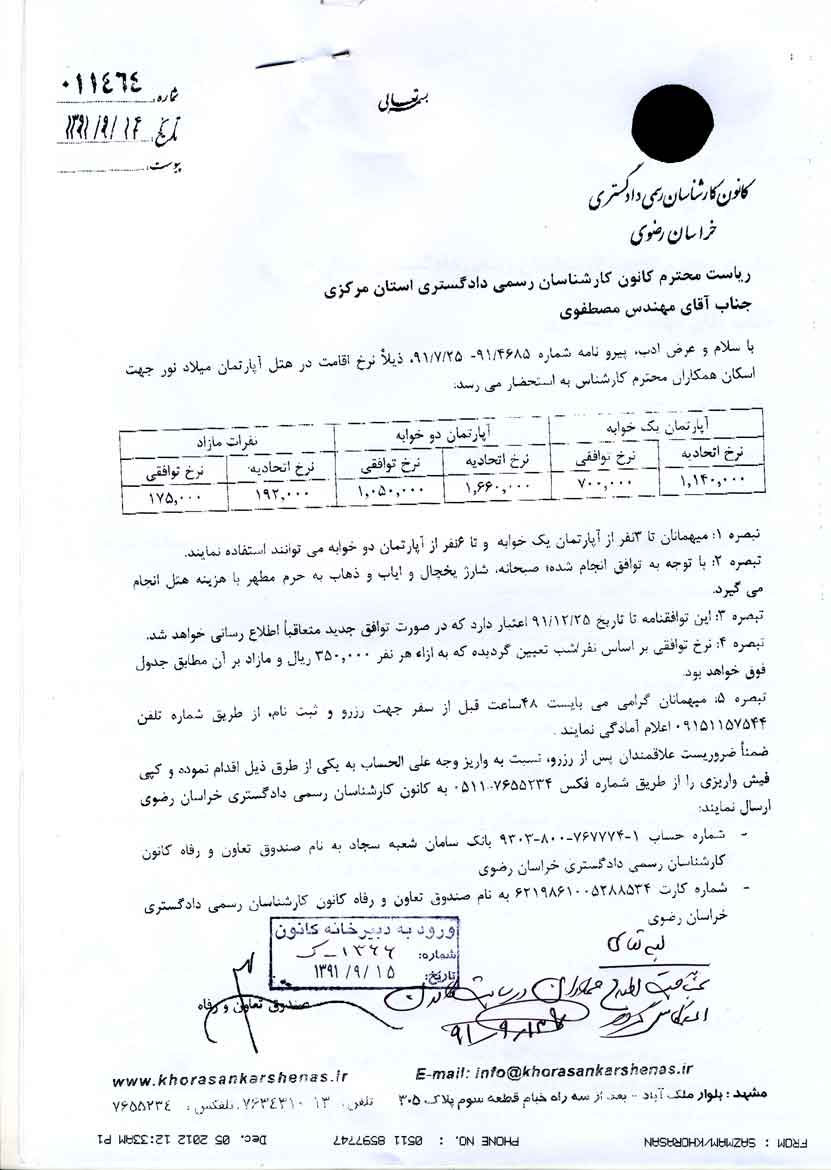 بسمه تعالی
شماره: ۰۱۱٤٦٤
تاریخ: ۱۳۹۱/۹/۱۴
پیوست:
کانون کارشناسان رسمی دادگستری
خراسان رضوی
ریاست محترم کانون کارشناسان رسمی دادگستری استان مرکزی
جناب آقای مهندس مصطفوی
با سلام و عرض ادب، پیرو نامه شماره ۹۱/۴۶۸۵- ۹۱/۷/۲۵، ذیلاً نرخ اقامت در هتل آپارتمان میلاد نور جهت
اسکان همکاران محترم کارشناس به استحضار می رسد:
آپارتمان یک خوابه آپارتمان دو خوابه نفرات مازاد
نرخ اتحادیه نرخ توافقی نرخ اتحادیه نرخ توافقی نرخ اتحادیه نرخ توافقی
۱,۱۴۰,۰۰۰ ۷۰۰,۰۰۰ ۱,۶۶۰,۰۰۰ ۱,۰۵۰,۰۰۰ ۱۹۲,۰۰۰ ۱۷۵,۰۰۰
تبصره ۱: میهمانان تا ۳نفر از آپارتمان یک خوابه و تا ۶نفر از آپارتمان دو خوابه می توانند استفاده نمایند.
تبصره ۲: با توجه به توافق انجام شده؛ صبحانه، شارژ یخچال و ایاب و ذهاب به حرم مطهر با هزینه هتل انجام
می گیرد.
تبصره ۳: این توافقنامه تا تاریخ ۹۱/۱۲/۲۵ اعتبار دارد که در صورت توافق جدید متعاقباً اطلاع رسانی خواهد شد.
تبصره ۴: نرخ توافقی بر اساس نفر/شب تعیین گردیده که به ازاء هر نفر ۳۵۰,۰۰۰ ریال و مازاد بر آن مطابق جدول
فوق خواهد بود.
تبصره ۵: میهمانان گرامی می بایست ۴۸ساعت قبل از سفر جهت رزرو و ثبت نام، از طریق شماره تلفن
۰۹۱۵۱۱۵۷۵۴۴ اعلام آمادگی نمایند .
ضمناً ضروریست علاقمندان پس از رزرو، نسبت به واریز وجه علی الحساب به یکی از طرق ذیل اقدام نموده و کپی
فیش واریزی را از طریق شماره فکس ۷۶۵۵۲۳۴-۰۵۱۱ به کانون کارشناسان رسمی دادگستری خراسان رضوی
ارسال نمایند:
- شماره حساب ۱-۷۶۷۷۷۴-۸۰۰-۹۳۰۳ بانک سامان شعبه سجاد به نام صندوق تعاون و رفاه کانون
کارشناسان رسمی دادگستری خراسان رضوی
- شماره کارت ۶۲۱۹۸۶۱۰۰۵۲۸۸۵۳۴ به نام صندوق تعاون و رفاه کانون کارشناسان رسمی دادگستری
خراسان رضوی
ورود به دبیرخانه کانون
شماره: ۱۳۶۶-ک
تاریخ: ۱۳۹۱/۹/۱۵
صندوق تعاون و رفاه
www.khorasankarshenas.ir E-mail: info@khorasankarshenas.ir
مشهد: بلوار ملک آباد - بعد از سه راه خیام قطعه سوم پلاک ۳۰۵ تلفن: ۱۳-۷۶۳٤۳۱۰ تلفکس: ۷۶۵۵۲۳٤
FROM : SAZMAM/KHORASAN PHONE NO. : 0511 8597747 Dec. 05 2012 12:33AM P1